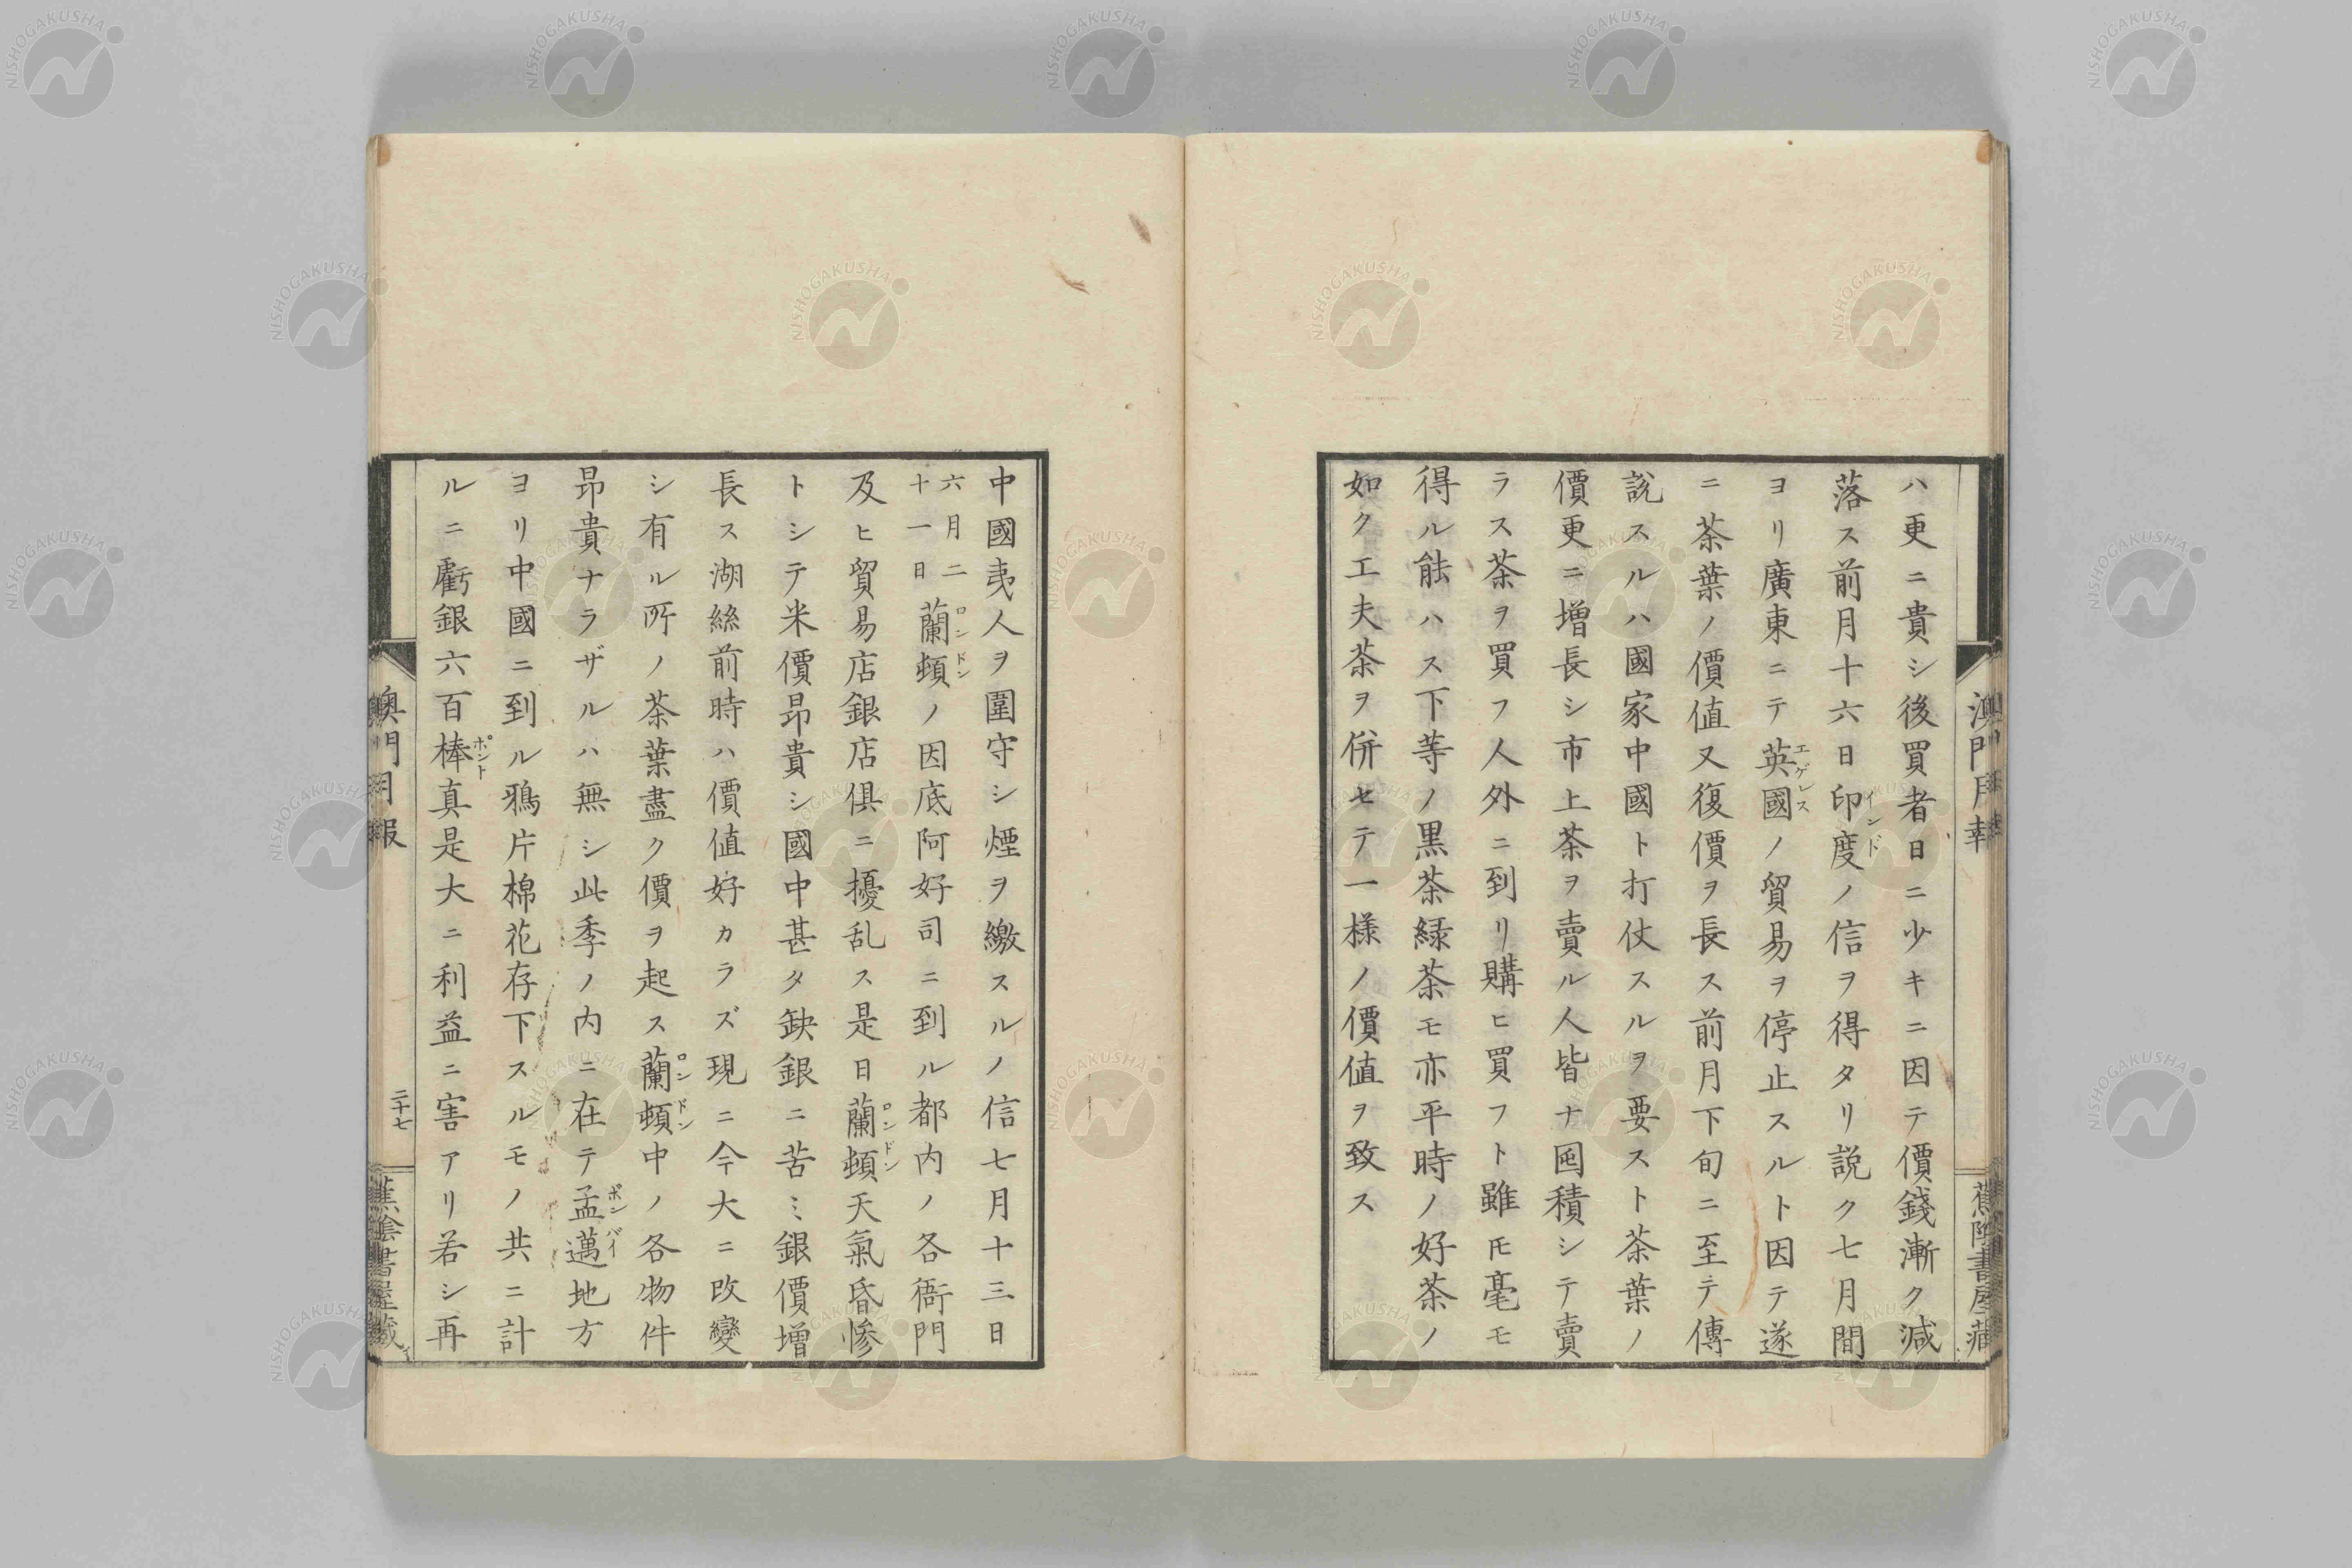 ハ更ニ貴シ後買者日ニ少キニ因テ價錢漸ク減
落ス前月十六日印度ノ信ヲ得タリ説ク七月間
インド
ヨリ廣東ニテ英國ノ貿易ヲ停止スルト因テ遂
エゲレス
ニ茶葉ノ價值又復價ヲ長ス前月下旬ニ至テ傳
説スルハ國家中國ト打仗スルヲ要スト茶葉ノ
價更ニ增長シ市上茶ヲ賣ル人皆ナ囤積シテ賣
ラス茶ヲ買フ人外ニ到リ購ヒ買フト雖𪜈毫モ
得ル能ハス下等ノ黒茶緑茶モ亦平時ノ好茶ノ
如ク工夫茶ヲ併セテ一樣ノ價值ヲ致ス
澳門月報
蕉陰書屋藏
中國夷人ヲ圍守シ煙ヲ繳スルノ信七月十三日
六月二
十一日蘭頓ノ因底阿好司ニ到ル都內ノ各衙門
ロンドン
及ヒ貿易店銀店俱ニ擾乱ス是日蘭頓天氣昏慘
ロンドン
トシテ米價昂貴シ國中甚タ缺銀ニ苦ミ銀價增
長ス湖絲前時ハ價值好カラズ現ニ今大ニ改變
シ有ル所ノ茶葉盡ク價ヲ起ス蘭頓中ノ各物件
ロンドン
昂貴ナラザルハ無シ此季ノ內ニ在テ孟邁地方
ボンバイ
ヨリ中國ニ到ル鴉片棉花存下スルモノ共ニ計
ルニ虧銀六百棒真是大ニ利益ニ害アリ若シ再
ポント
澳門月報
二十七
蕉陰書屋藏
NISHOGAKUSHA